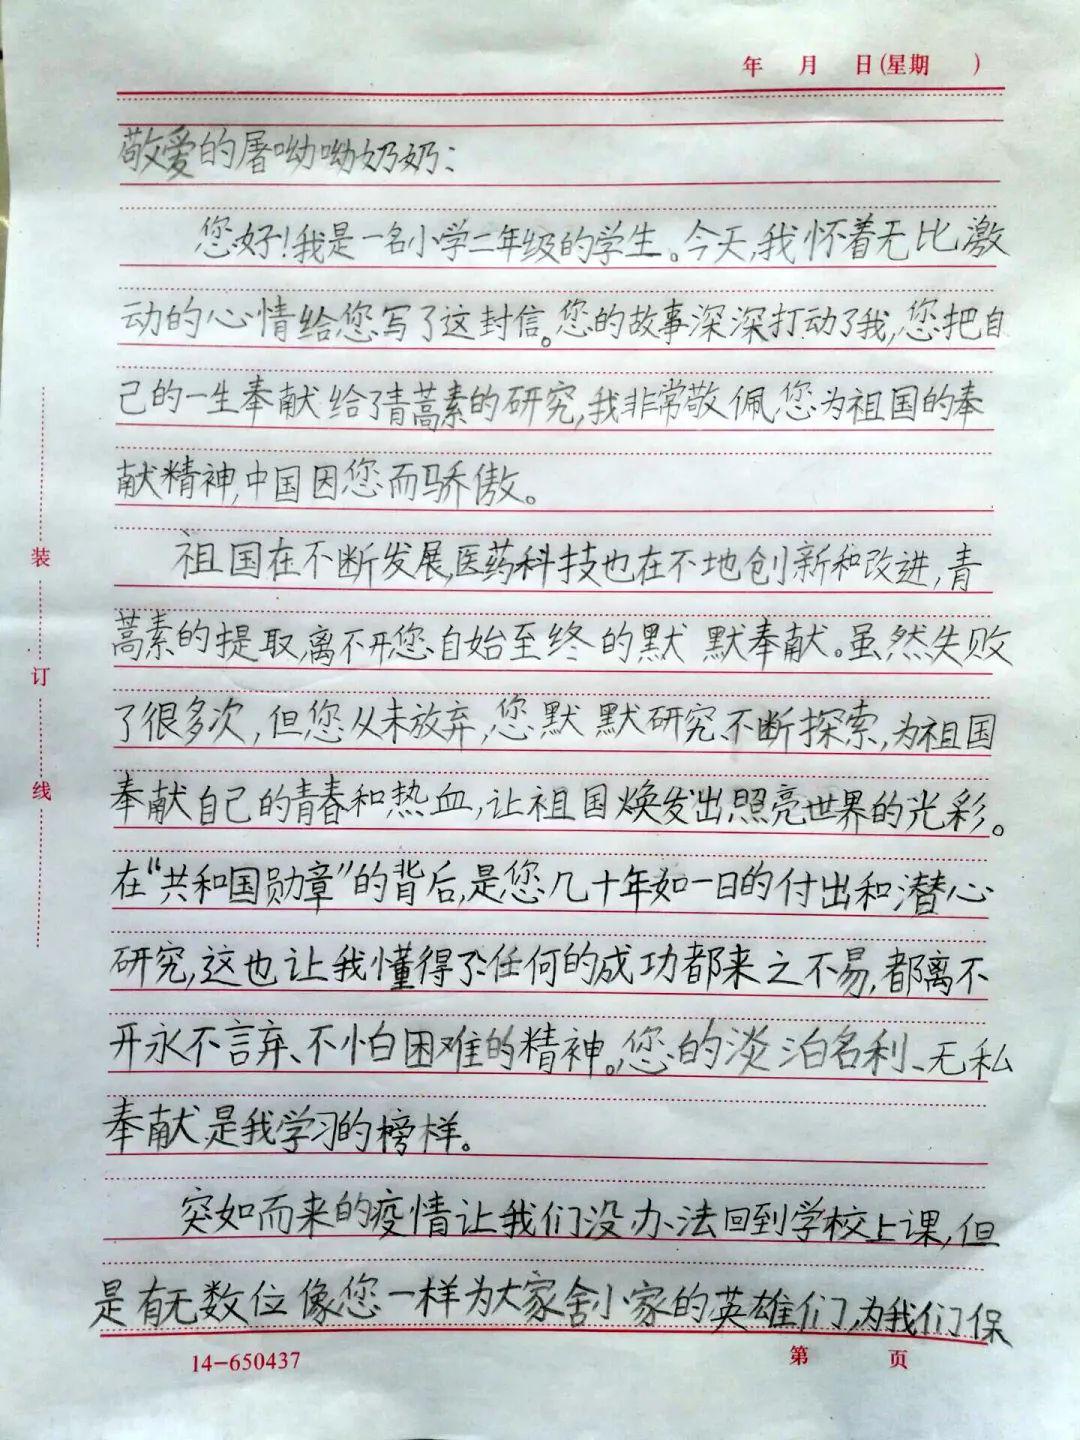 年 月 日(星期 )
敬爱的屠呦呦奶奶:
您好!我是一名小学二年级的学生。今天,我怀着无比激
动的心情给您写了这封信。您的故事深深打动了我,您把自
己的一生奉献给了青蒿素的研究,我非常敬佩您为祖国的奉
献精神,中国因您而骄傲。
祖国在不断发展,医药科技也在不地创新和改进,青
蒿素的提取,离不开您自始至终的默默奉献。虽然失败
了很多次,但您从未放弃,您默默研究、不断探索,为祖国
奉献自己的青春和热血,让祖国焕发出照亮世界的光彩。
在“共和国勋章”的背后,是您几十年如一日的付出和潜心
研究,这也让我懂得了:任何的成功都来之不易,都离不
开永不言弃、不怕困难的精神。您的淡泊名利、无私
奉献是我学习的榜样。
突如而来的疫情让我们没办法回到学校上课,但
是有无数位像您一样为大家舍小家的英雄们,为我们保
装
订
线
14-650437
第 页